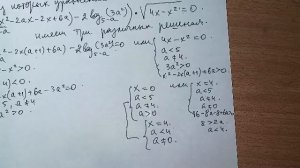 которых уравнение
x² - 2ax - 2x + 6a) - 2 log₅₋ₐ(3a²)) · √(4x - x²) = 0
имеет три различных решения.
x² - 2x(a+1) + 6a) - 2 log₅₋ₐ(3a²) = 0 или
4x - x² = 0
a < 5
a ≠ 4
3a² > 0
x² - 2x(a+1) + 6a > 0
- x² > 0
- 4) < 0.
x(a+1) + 6a - 3a² = 0
5, a ≠ 4.
a² > 0
x = 0
a < 5
a ≠ 4
a > 0
или
x = 4
a < 5
a ≠ 4
16 - 8a - 8 + 6a > 0
8 > 2a
a < 4.
x = 4.
a < 4
a ≠ 0.